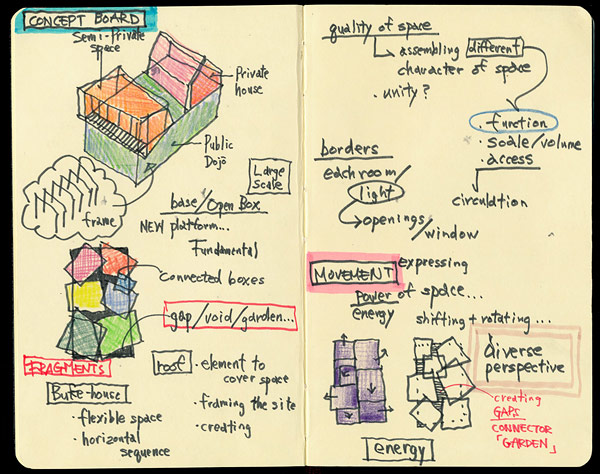 CONCEPT BOARD
Semi-Private
space
Private
house
Public
Dojō
Large
Scale
frame
base/Open Box
NEW platform...
Fundamental
connected boxes
gap/void/garden...
FRAGMENTS
Buke-house
• flexible space
• horizontal
sequence
roof
• element to
cover space
• framing the site
• creating
quality of space
assembling different
character of space
• unity?
• function
• scale/volume
• access
circulation
borders
each room/
light
openings
/window
MOVEMENT
expressing
power of space...
energy
shifting + rotating...
diverse
perspective
creating
GAPS
CONNECTOR
「GARDEN」
energy